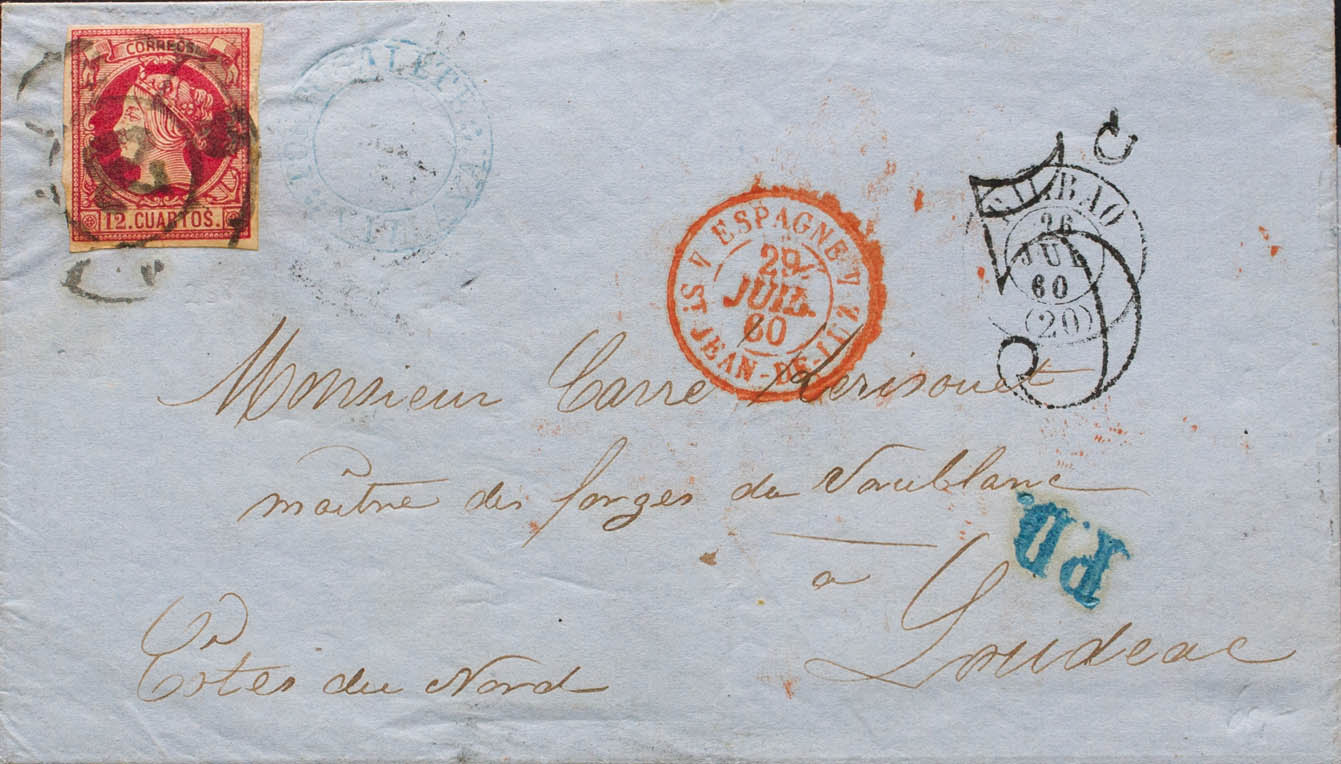 CORREOS
12. CUARTOS.
ESPAGNE
29
JUIL.
60
ST JEAN-DE-LUZ
5 C
BILBAO
26
JUL
60
(20)
Monsieur Carré Kerisouet
maître des forges du Vaublanc
P.D.
a
Loudeac
Côtes du Nord